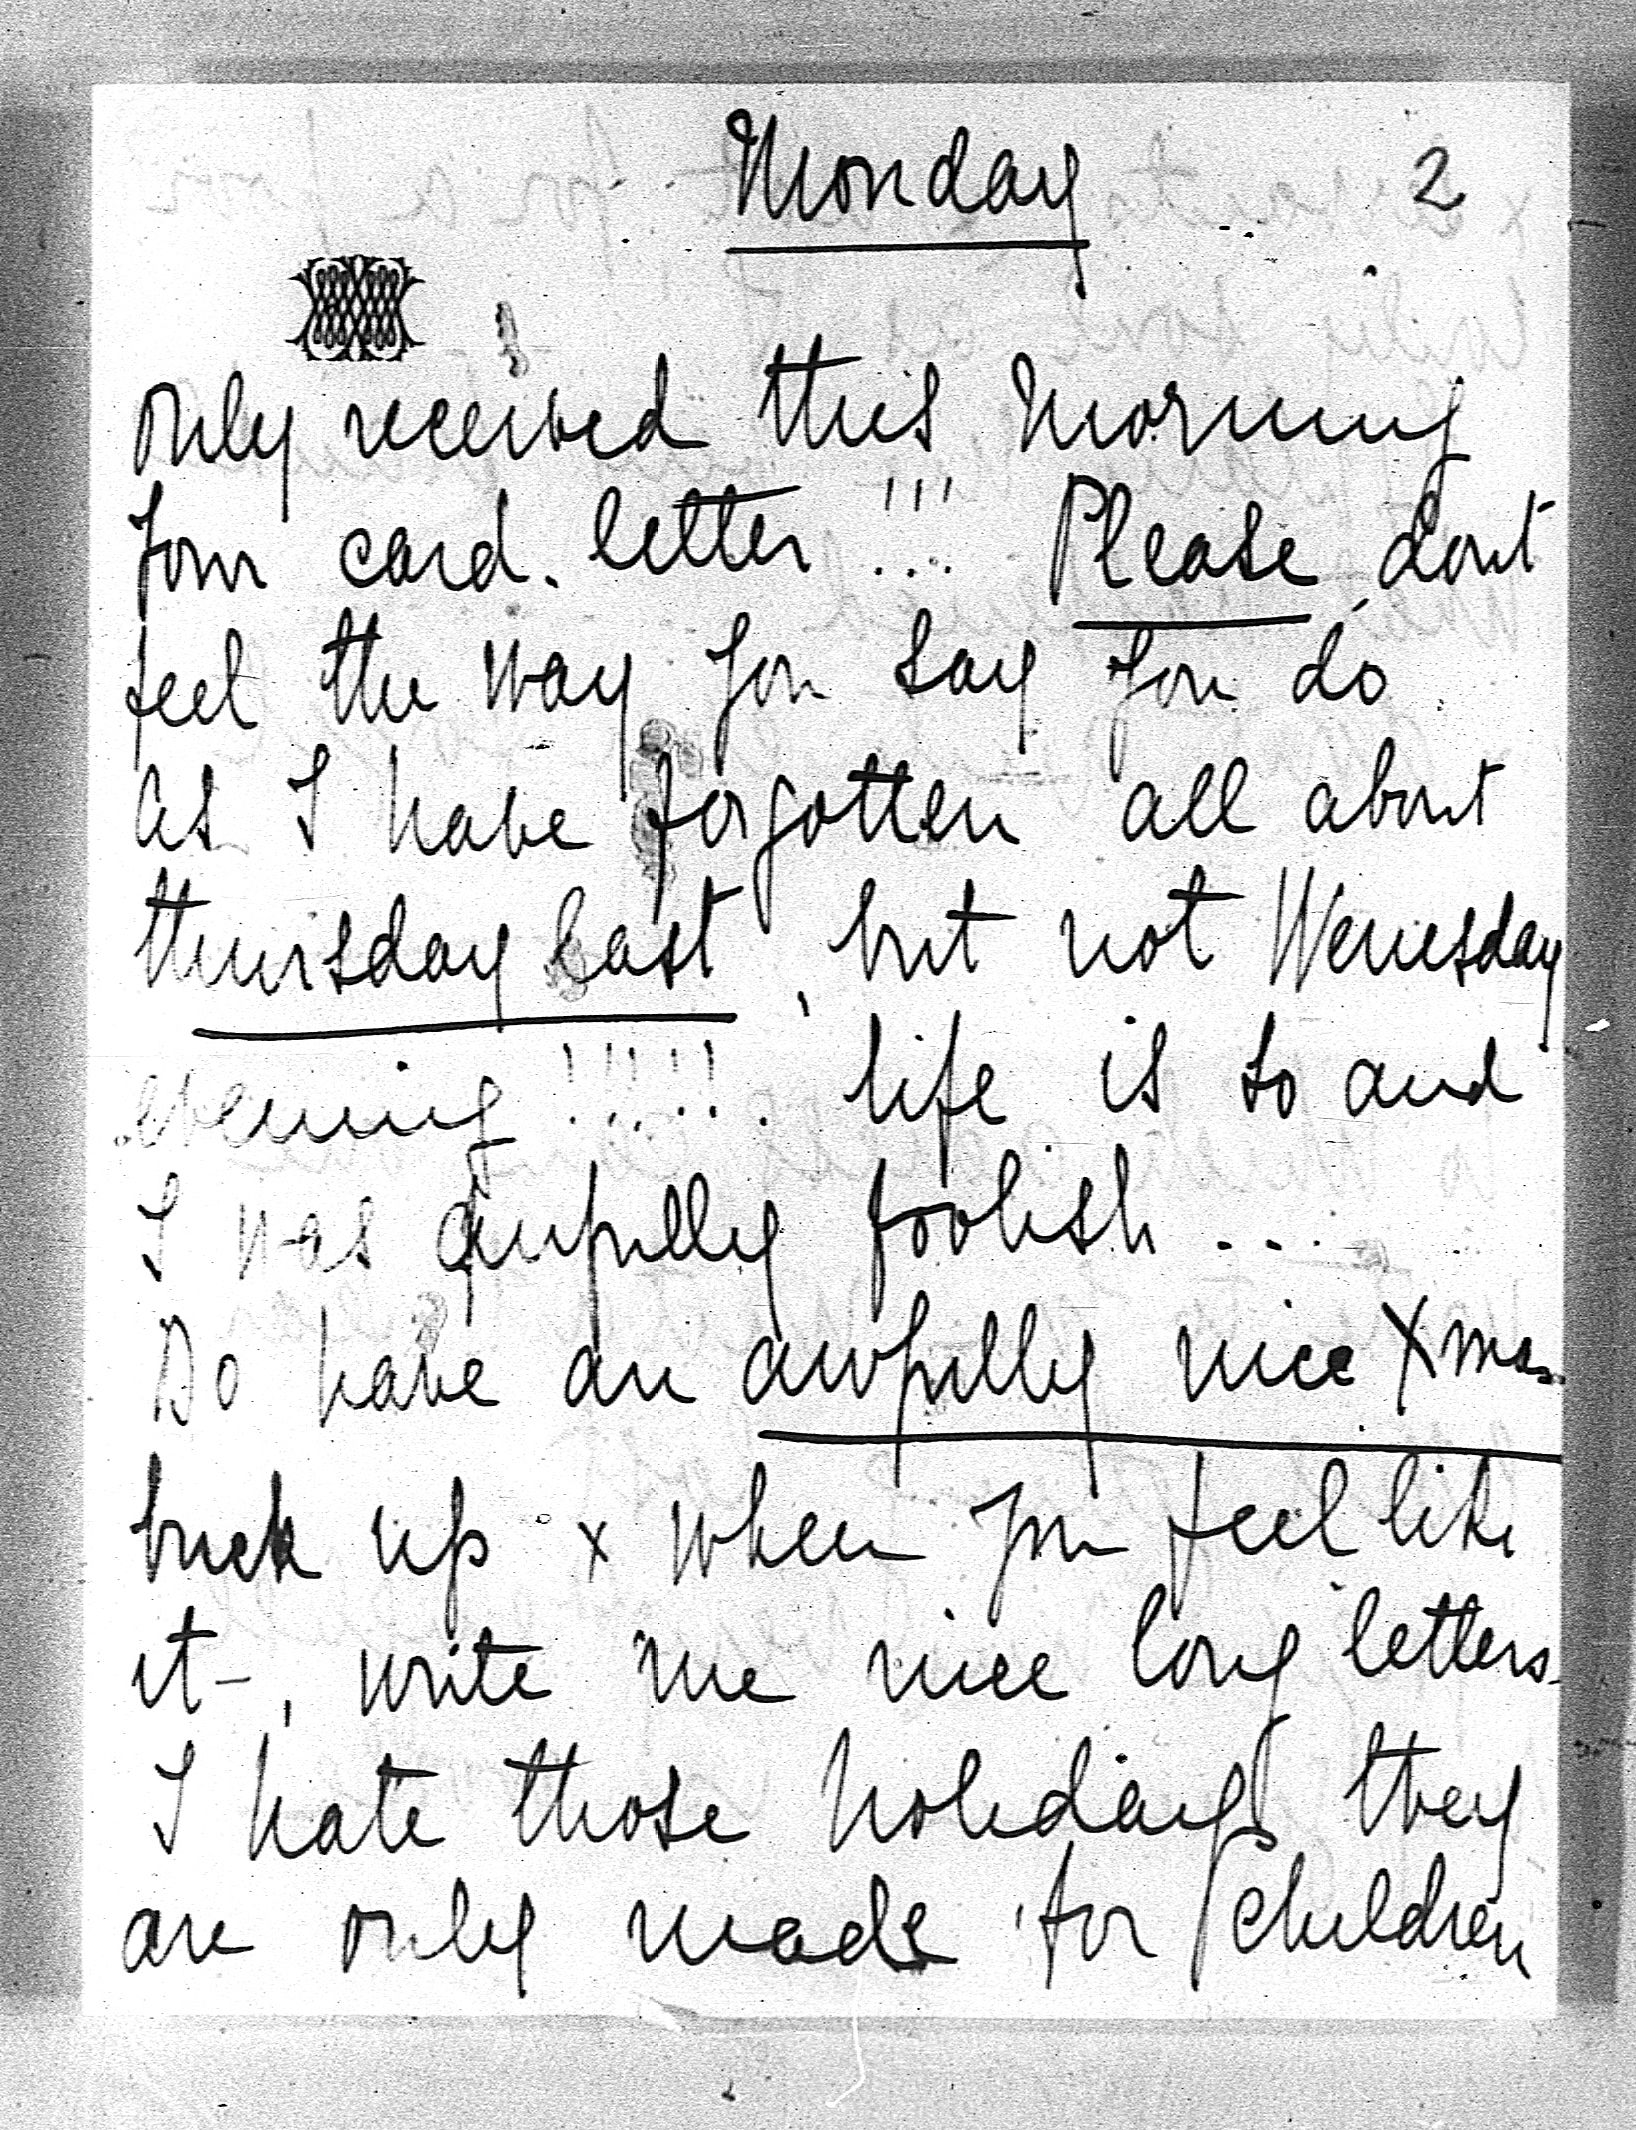 Monday 2
only received this morning
your card. letter!!! Please, dont
feel the way you say you do
as I have forgotten all about
thursday last, but not Wenesday
evening!!!!! life is so and
I was awfully foolish ...
Do have an awfully nice Xmas.
buck up x when you feel like
it-, write me nice long letters.
I hate those holidays they
are only made for children